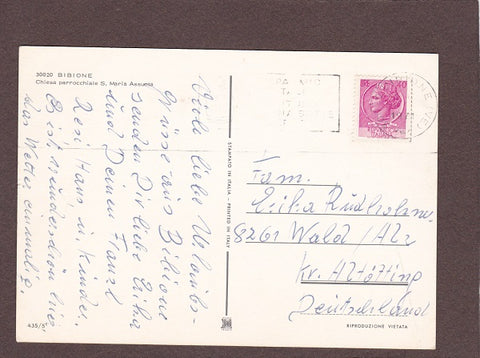 30020 BIBIONE
Chiesa parrocchiale S. Maria Assunta
Viele liebe Urlaubs-
Grüsse aus Bibione
senden Dir liebe Erika
und Deinem Franzl
Resi Hans u. Kinder.
Es ist wunderschön hier
das Wetter einmalig.
435/5
STAMPATO IN ITALIA - PRINTED IN ITALY
40
Fam.
Erika
8261 Wald / Alz
Kr. Altötting
Deutschland
RIPRODUZIONE VIETATA